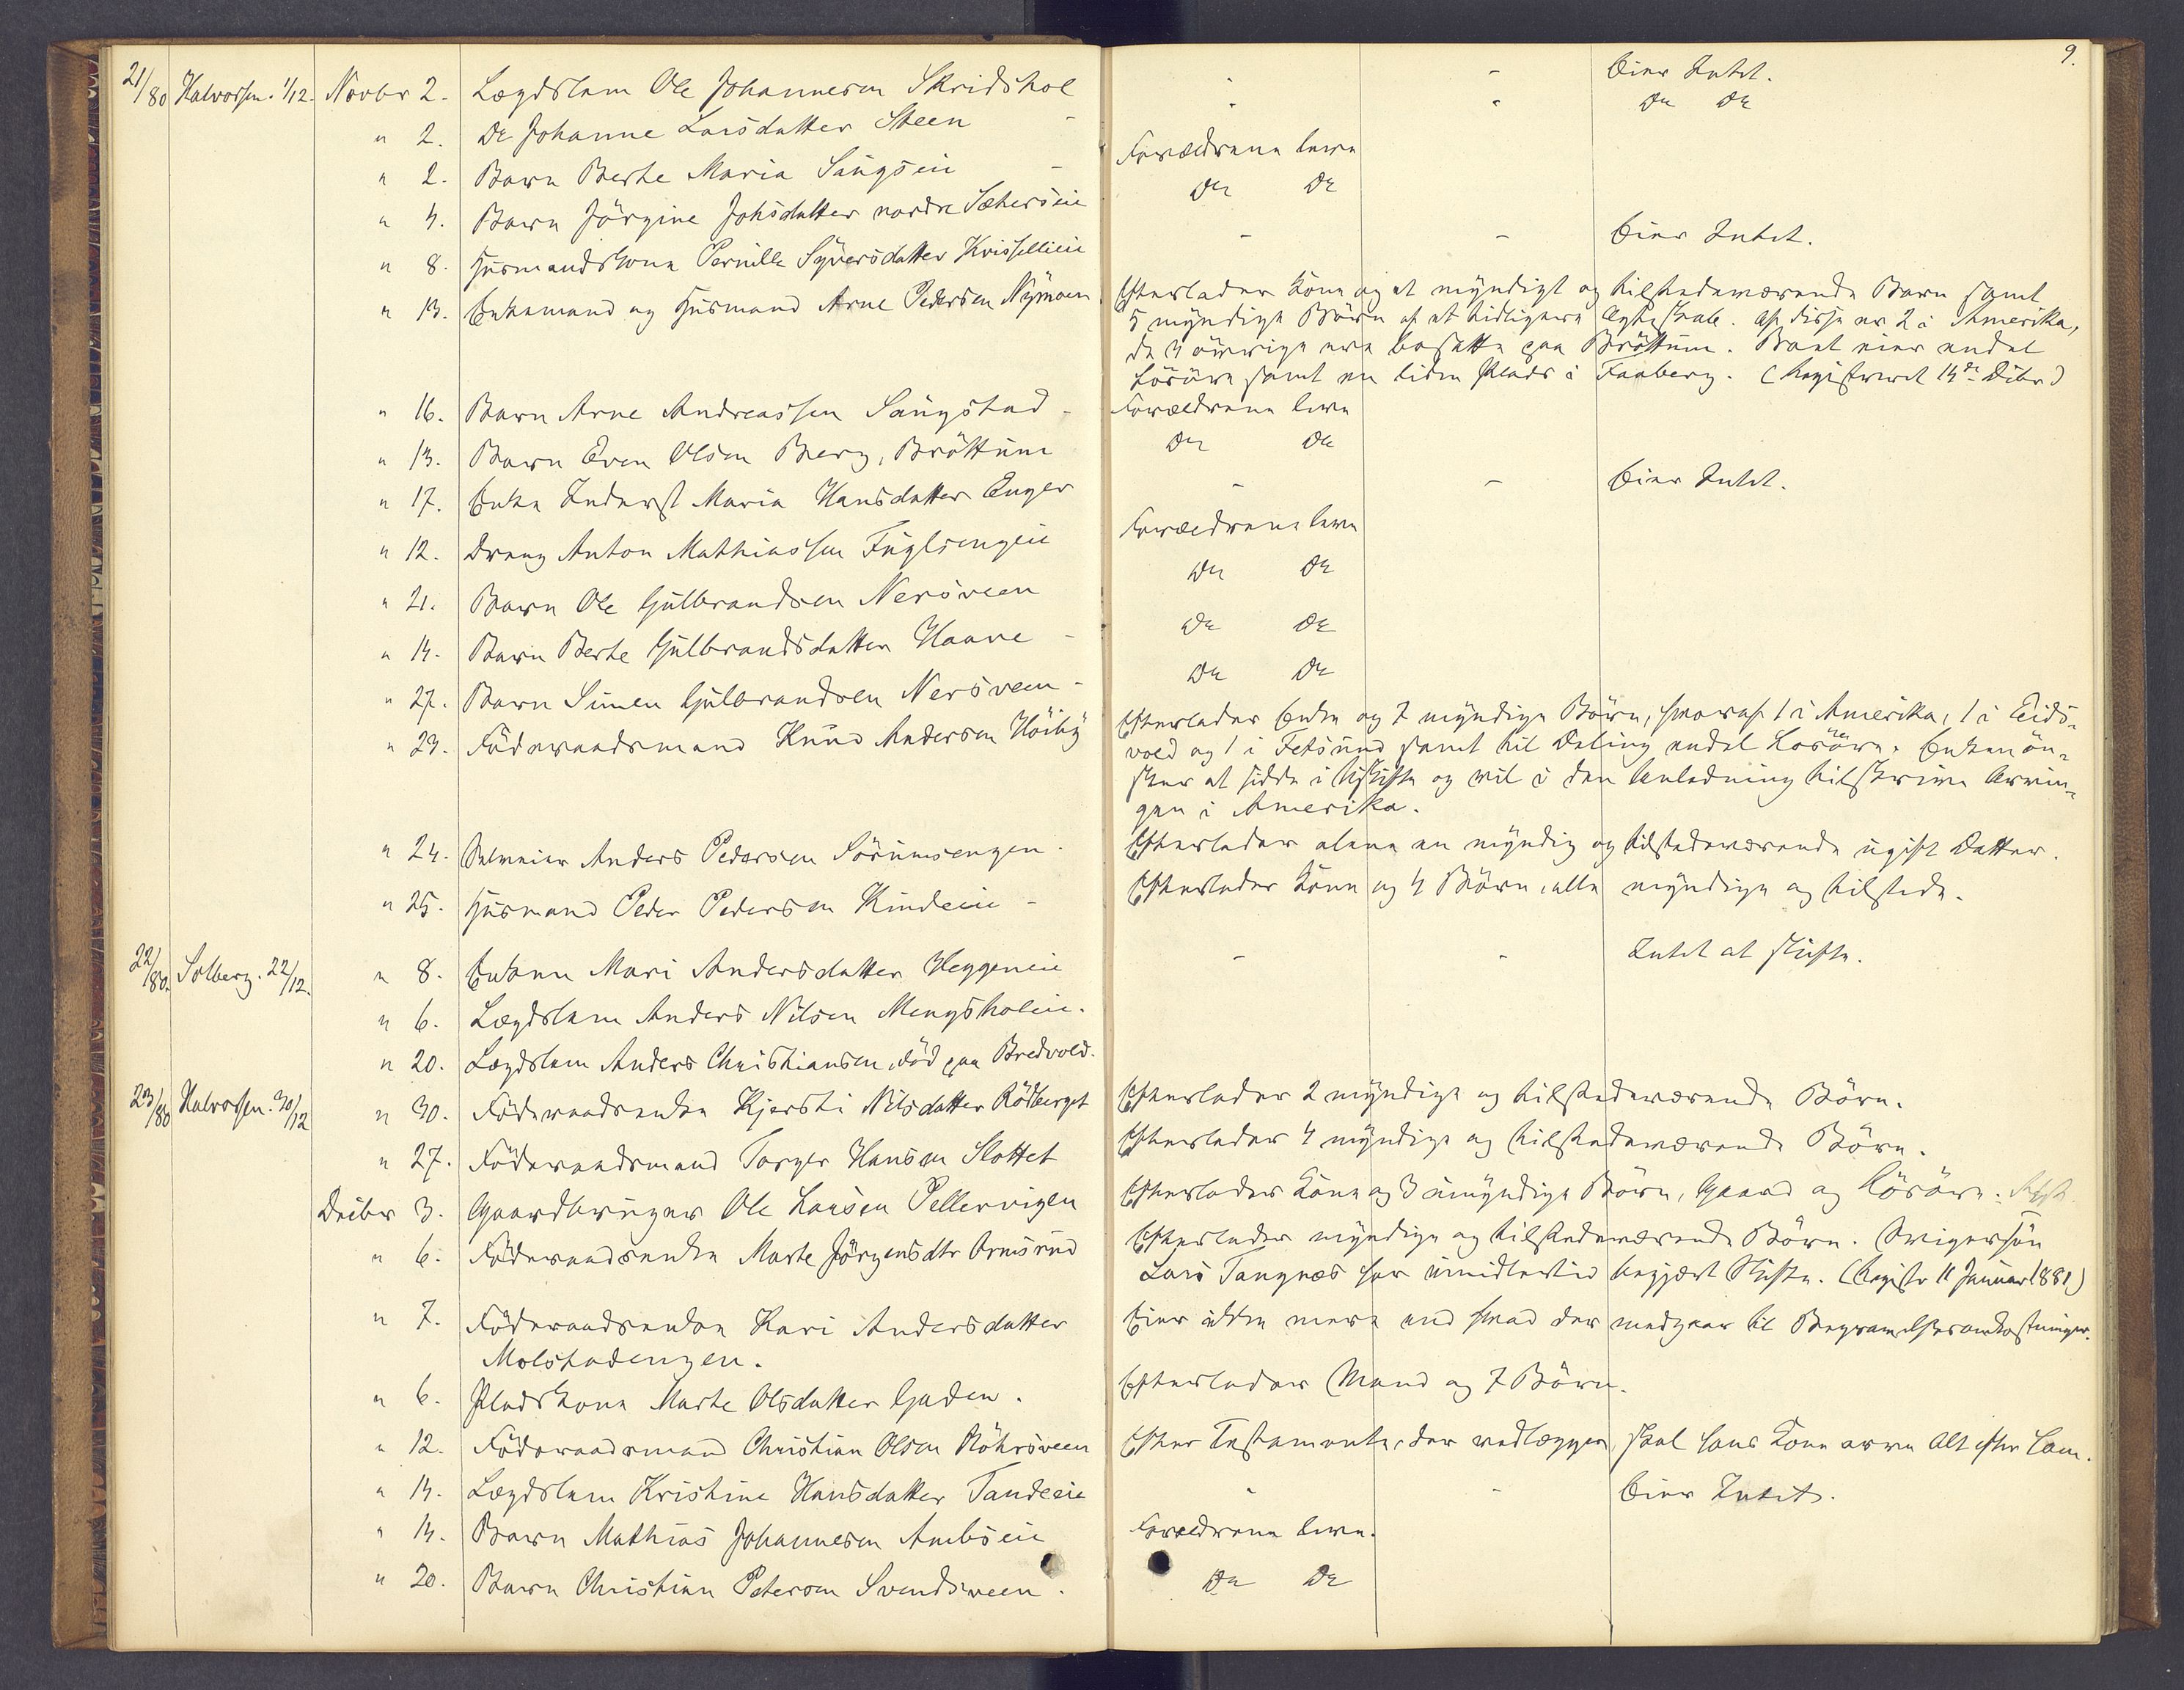 9.
21/80 Halvorsen. 1/12. Novbr 2. Lægdslem Ole Johannesen Skridshol - - Eier Intet.
" 2. Do Johanne Larsdatter Steen - - - Do Do
" 2. Barn Berte Maria Saugseie - Forældrene leve
" 4. Barn Jörgine Johsdatter nordre Sæherseie Do Do
" 8. Husmandskone Pernille Syversdatter Krisellieie - - Eier Intet.
" 13. Enkemand og Husmand Arne Pedersen Nÿmoen. Efterlader Kone og et myndigt og tilstedeværende Barn samt
5 myndige Börn af et tidligere Ægteskab. Af disse er 2 i Amerika,
de 3 övrige ere bosatte paa Bröttum. Boet eier endel
Lösöre samt en liden Plads i Faaberg. (Registreret 14de Dcbr)
" 16. Barn Arne Andreassen Saugstad - Forældrene leve
" 13. Barn Even Olsen Berg, Bröttum Do Do
" 17. Enke Inderst Maria Hansdatter Enger - - Eier Intet.
" 12. Dreng Anton Mathiassen Fuglsengeie Forældrene leve
" 21. Barn Ole Gulbrandsen Nersveen Do Do
" 14. Barn Berte Gulbrandsdatter Haave - Do Do
" 27. Barn Simen Gulbrandsen Nersveen - Do Do
" 23. Föderaadsmand Knud Andersen Höiby Efterlader Enke og 7 myndige Börn, hvoraf 1 i Amerika, 1 i Eids-
vold og 1 i Fetsund samt til Deling endel Losöre. Enken ön-
sker at sidde i Uskifte og vil i den Anledning tilskrive Arvin-
gen i Amerika.
" 24. Selveier Anders Pedersen Sörumsengen. Efterlader alene en myndig og tilstedeværende ugift Datter.
" 25. Husmand Peder Pedersen Kindeie - Efterlader Kone og 4 Börn, alle myndige og tilstede.
22/80. Solberg. 22/12. " 8. Enkone Mari Andersdatter Heggeneie - - Intet at skifte.
" 6. Lægdslem Anders Nilsen Mengsholeie.
" 20. Lægdslem Anders Christiansen, död paa Bredvold.
23/80 Halvorsen. 30/12 " 30. Föderaadsenke Kjersti Nilsdatter Rödberget Efterlader 2 myndige og tilstedeværende Börn.
" 27. Föderaadsmand Torger Hansen Slottet Efterlader 4 myndige og tilstedeværende Börn.
Dcbr 3. Gaardbruger Ole Larsen Pellervigen Efterlader Kone og 3 umyndige Börn, Gaard og Lösöre.
" 6. Föderaadsenke Marte Jörgensdtr Arnisrud Efterlader myndige og tilstedeværende Börn. Svigersön
Lars Tangnæs har imidlertid begjært Skifte. (Registr 11 Januar 1881)
" 7. Föderaadsenken Kari Andersdatter Eier ikke mere end hvad der medgaar til Begravelsesomkostninger.
Molstadengen.
" 6. Pladskone Marte Olsdatter Gaden. Efterlader Mand og 7 Börn.
" 12. Föderaadsmand Christian Olsen Röhrsveen Efter Testamente, der vedlægges, skal hans Kone arve Alt efter ham.
" 14. Lægdslem Kristine Hansdatter Tandeeie - - Eier Intet.
" 14. Barn Mathias Johannesen Ambseie Forældrene leve.
" 20. Barn Christian Petersen Svendsveen. Do Do